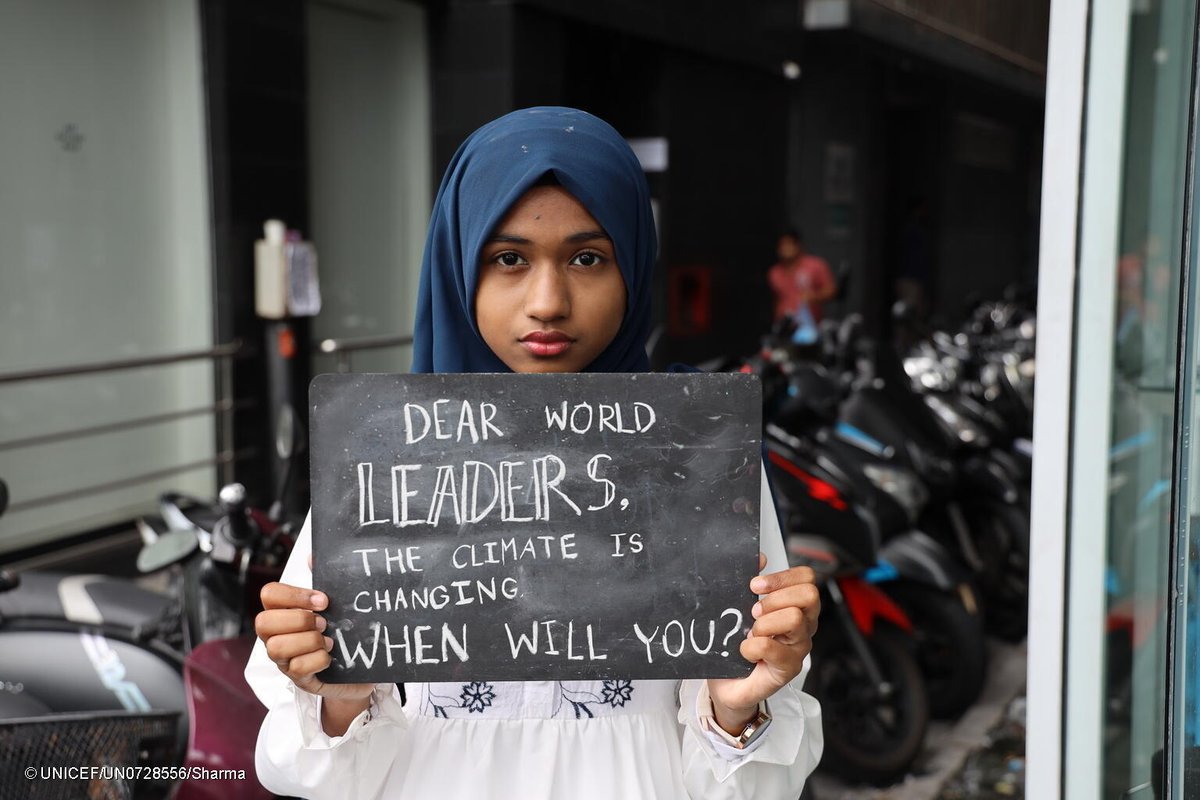 DEAR WORLD
LEADERS,
THE CLIMATE IS
CHANGING.
WHEN WILL YOU?
© UNICEF/UN0728556/Sharma